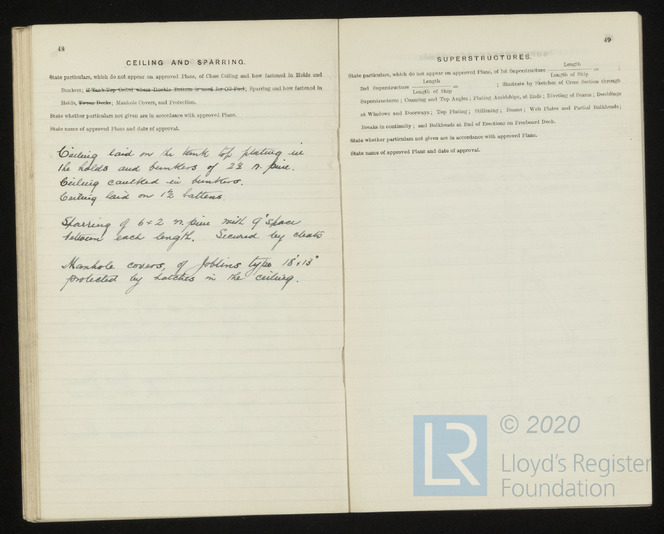 48
CEILING AND SPARRING.
State particulars, which do not appear on approved Plans, of Close Ceiling and how fastened in Holds and
Bunkers; if Tank Top Coated where Double Bottom is used for Oil Fuel; Sparring and how fastened in
Holds, 'Tween Decks; Manhole Covers, and Protection.
State whether particulars not given are in accordance with approved Plans.
State name of approved Plans and date of approval.
Ceiling laid on the tank top plating in
the holds and bunkers of 2½ n. pine.
Ceiling caulked in bunkers.
Ceiling laid on 1½ battens
Sparring of 6 x 2 n. pine with 9" space
between each length. Secured by cleats
Manhole covers, of Joblins type 18" x 13"
protected by hatches in the ceiling.
49
SUPERSTRUCTURES.
State particulars, which do not appear on approved Plans, of 1st Superstructure Length / Length of Ship = ;
2nd Superstructure Length / Length of Ship = ; Illustrate by Sketches of Cross Section through
Superstructures; Coaming and Top Angles; Plating Amidships, at Ends; Riveting of Seams; Doublings
at Windows and Doorways; Top Plating; Stiffening; Beams; Web Plates and Partial Bulkheads;
Breaks in continuity; and Bulkheads at End of Erections on Freeboard Deck.
State whether particulars not given are in accordance with approved Plans.
State name of approved Plans and date of approval.
LR © 2020
Lloyd's Register
Foundation